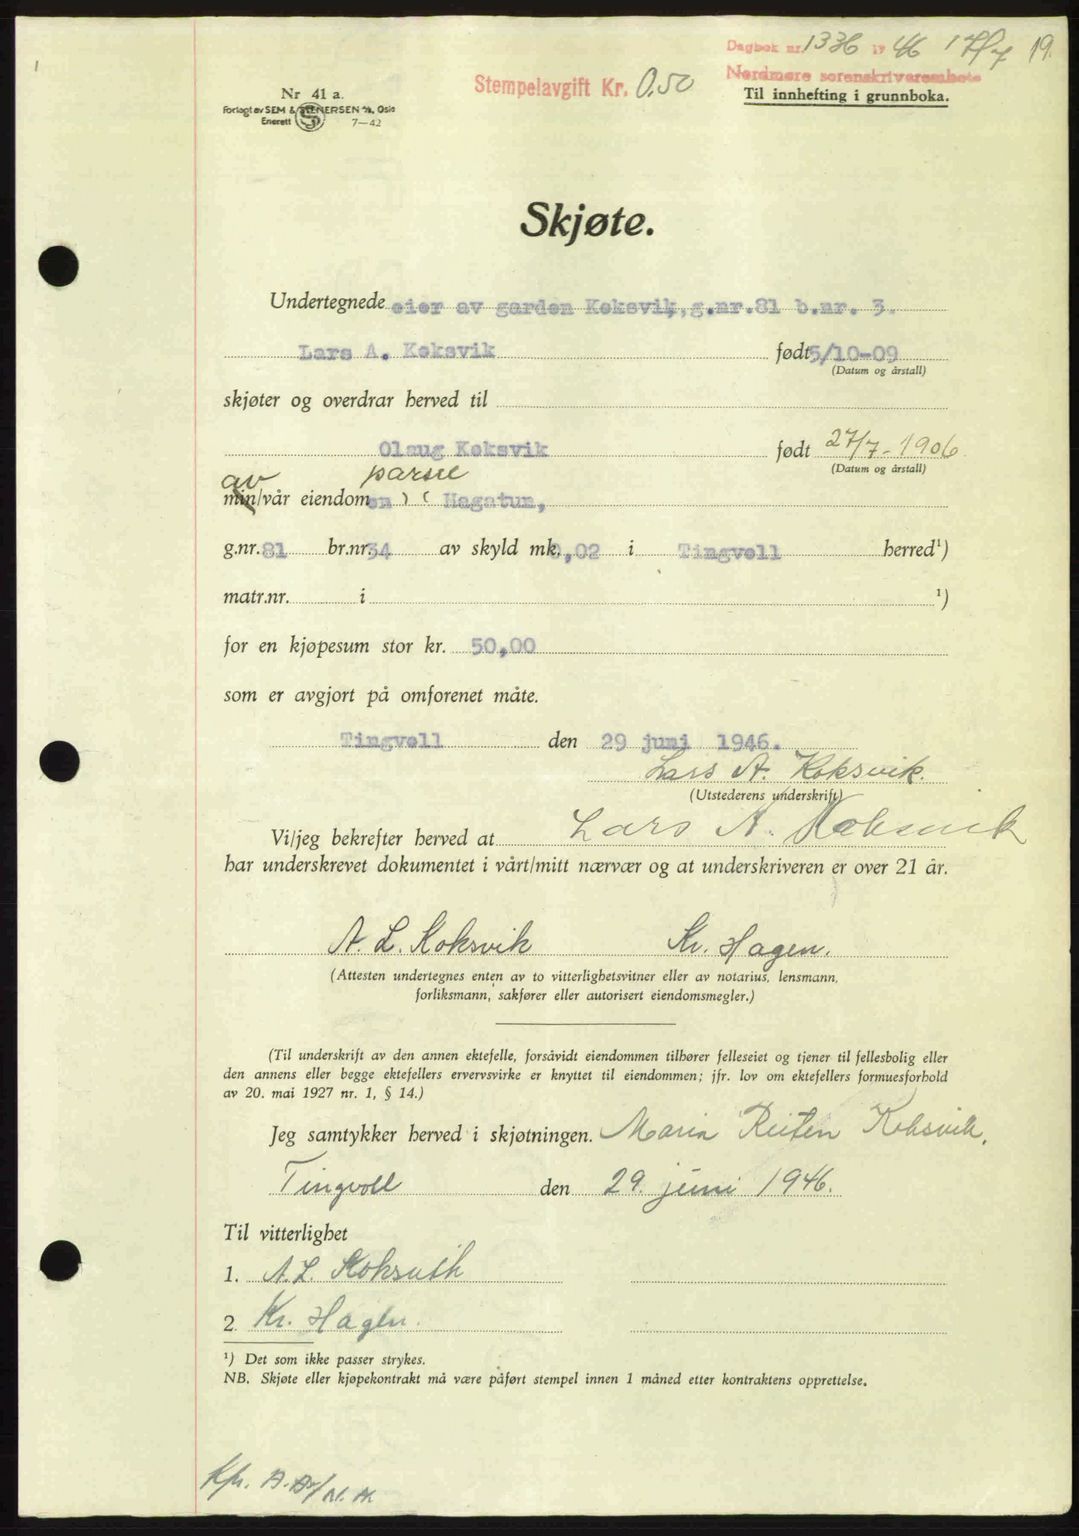 Dagbok nr. 1336 19 46 17/7 19.
Nordmøre sorenskriverembete
Stempelavgift Kr. 0.50
Til innhefting i grunnboka.
Nr 41 a.
Forlagt av SEM & STENERSEN A/S, Oslo
Enerett 7-42
Skjøte.
Undertegnede eier av garden Koksvik, g.nr. 81 b.nr. 3.
Lars A. Koksvik født 5/10-09
(Datum og årstall)
skjøter og overdrar herved til
Olaug Koksvik født 27/7-1906.
(Datum og årstall)
av
min/vår eiendom en ) ( Hagatun,
g.nr. 81 br.nr. 34 av skyld mk. 0,02 i Tingvoll herred¹)
matr.nr. i ¹)
for en kjøpesum stor kr. 50,00
som er avgjort på omforenet måte.
Tingvoll den 29 juni 1946.
Lars A. Koksvik.
(Utstederens underskrift)
Vi/jeg bekrefter herved at Lars A. Koksvik
har underskrevet dokumentet i vårt/mitt nærvær og at underskriveren er over 21 år.
A. L. Koksvik Kr. Hagen.
(Attesten undertegnes enten av to vitterlighetsvitner eller av notarius, lensmann,
forliksmann, sakfører eller autorisert eiendomsmegler.)
(Til underskrift av den annen ektefelle, forsåvidt eiendommen tilhører felleseiet og tjener til fellesbolig eller
den annens eller begge ektefellers ervervsvirke er knyttet til eiendommen; jfr. lov om ektefellers formuesforhold
av 20. mai 1927 nr. 1, § 14.)
Jeg samtykker herved i skjøtningen. Maria Reiten Koksvik.
Tingvoll den 29. juni 1946.
Til vitterlighet
1. A. L. Koksvik
2. Kr. Hagen.
¹) Det som ikke passer strykes.
NB. Skjøte eller kjøpekontrakt må være påført stempel innen 1 måned etter kontraktens opprettelse.